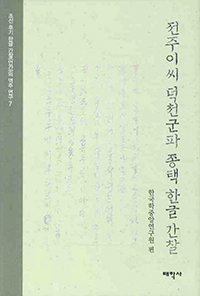 전주이씨 덕천군파 종택 한글 간찰
한국학중앙연구원 편
태학사
조선 후기 한글 간찰(언간)의 역주 연구 7